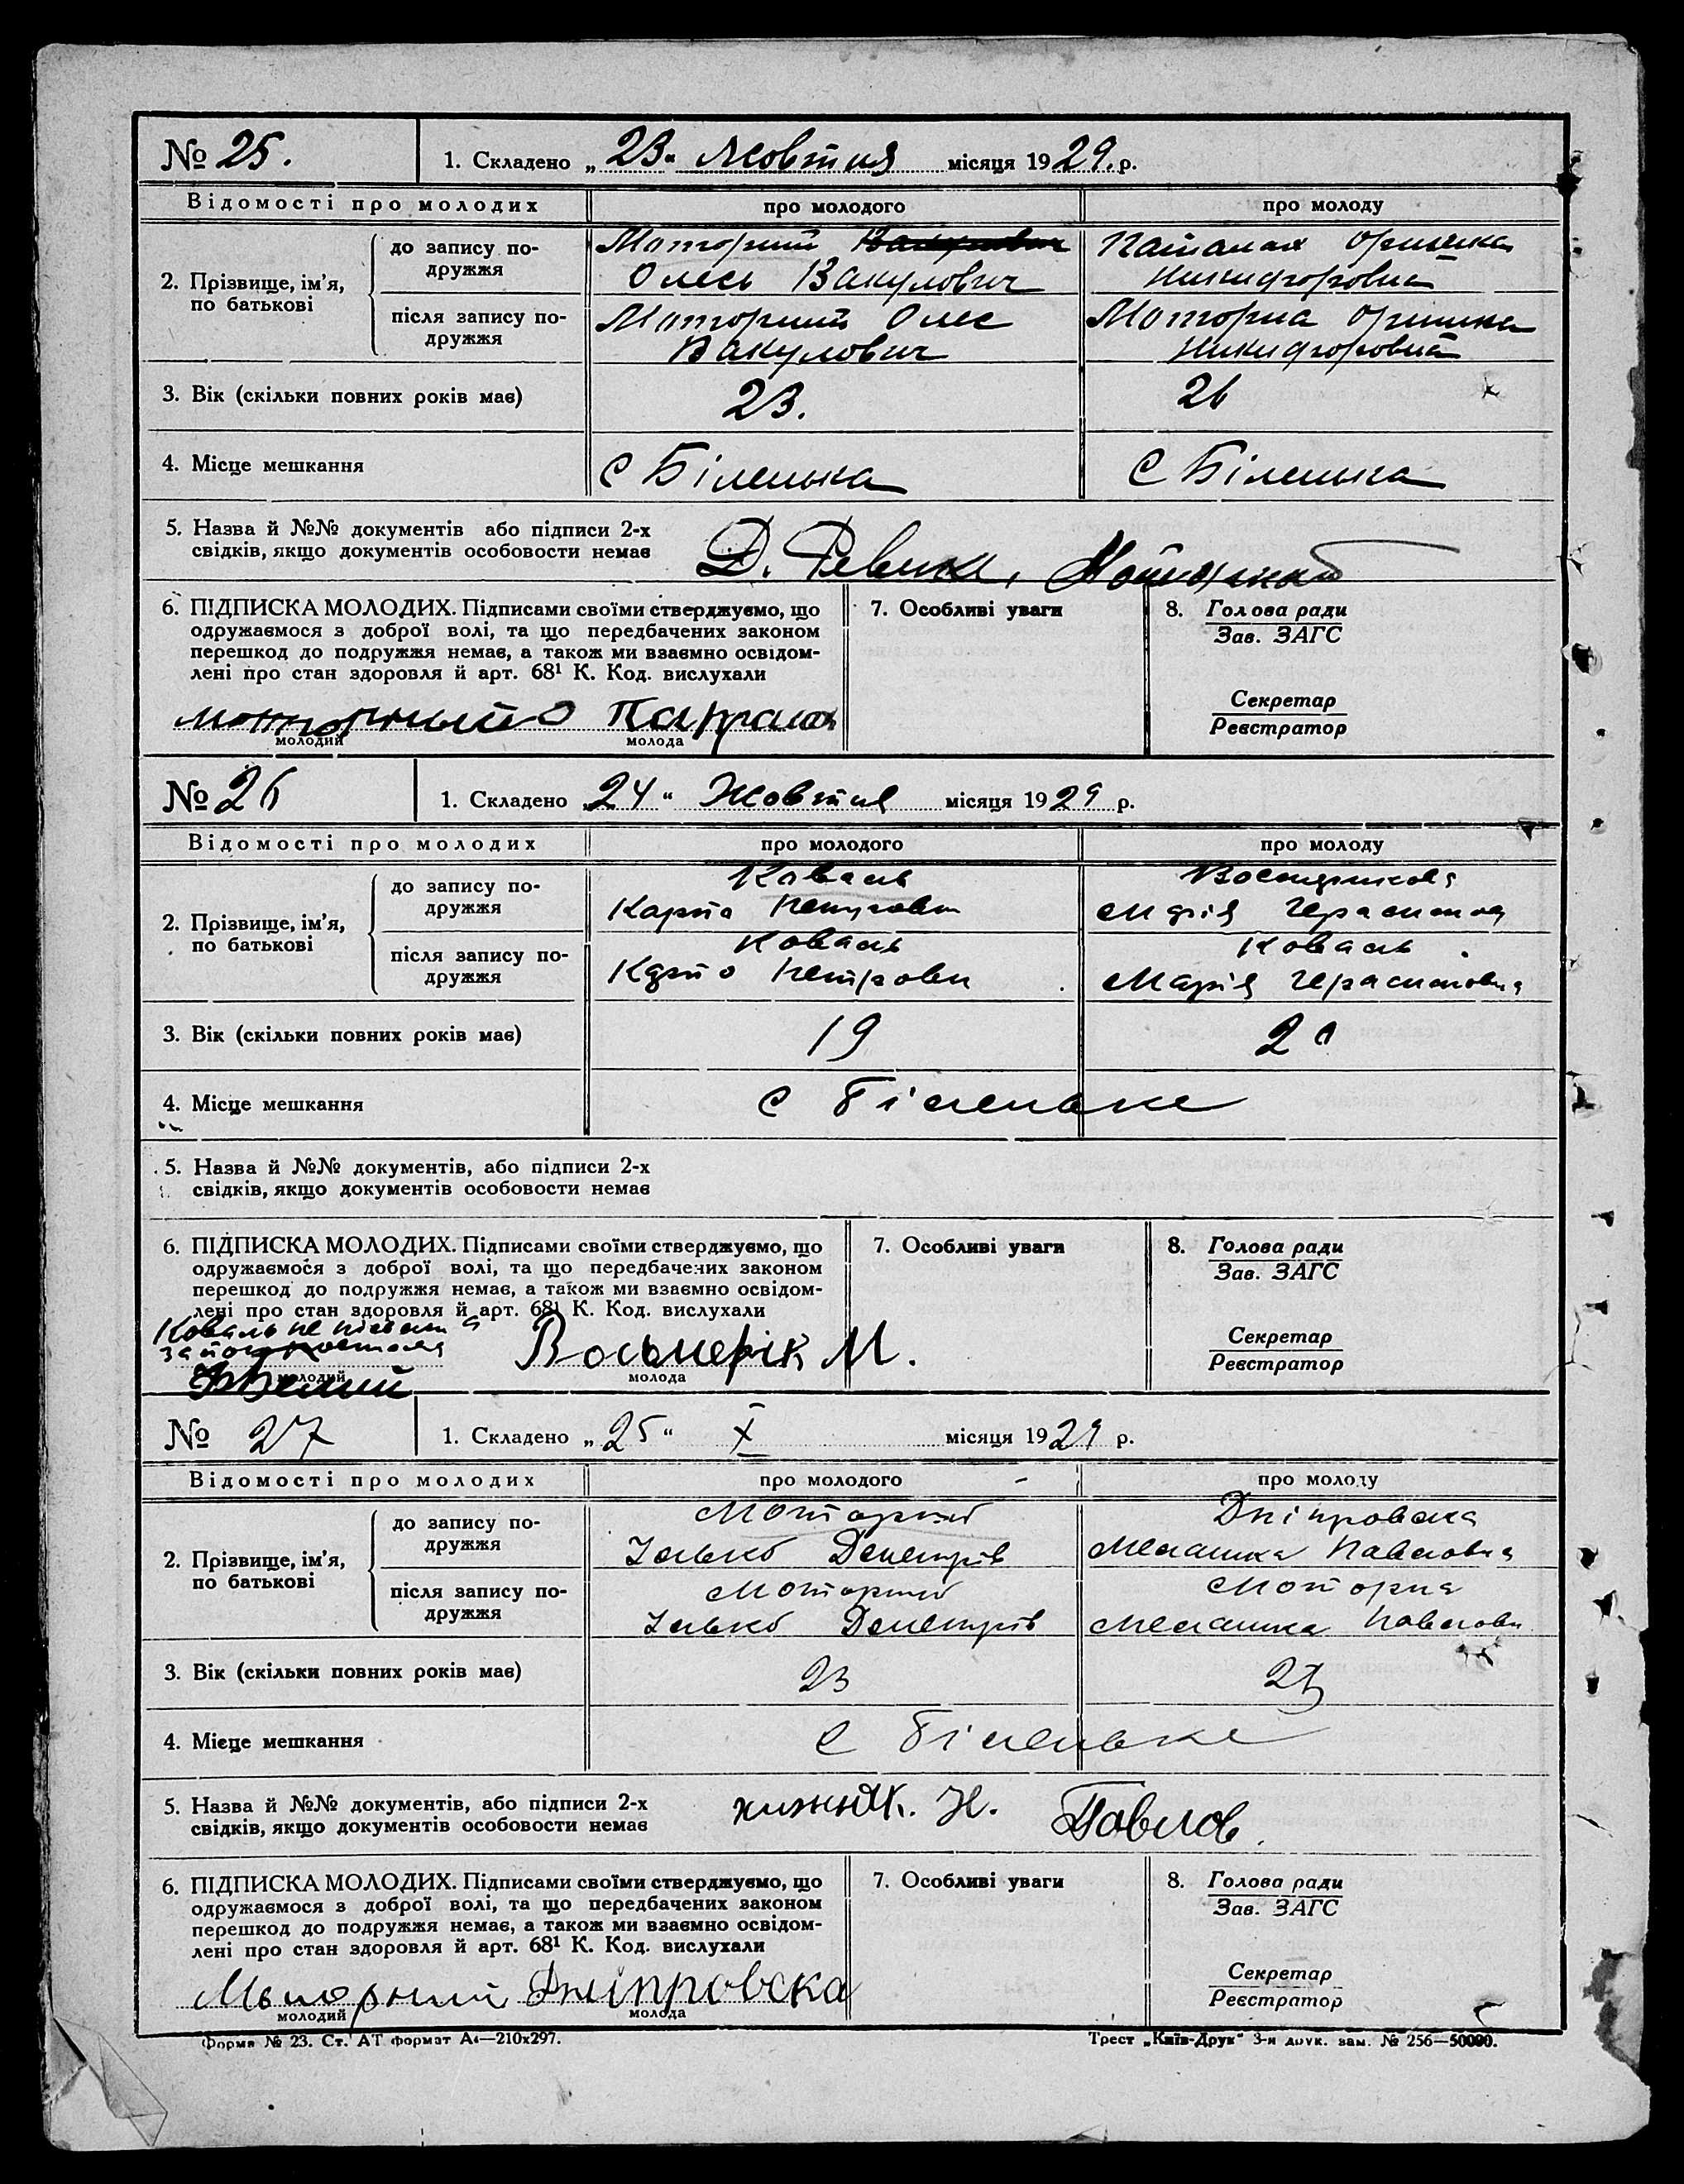 № 25.
1. Складено „ 23 “ Жовтня місяця 1929. р.
Відомості про молодих про молодого про молоду
2. Прізвище, ім'я, по батькові
до запису подружжя
Моторний
Олесь Вакулович
Никифоровна
після запису подружжя
Моторний Олес
Вакулович
Моторна Оришка
Никифоровна
3. Вік (скільки повних років має) 23. 26
4. Місце мешкання С Біленька С Біленька
5. Назва й №№ документів або підписи 2-х
свідків, якщо документів особовости немає
Д.
6. ПІДПИСКА МОЛОДИХ. Підписами своїми стверджуємо, що
одружаємося з доброї волі, та що передбачених законом
перешкод до подружжя немає, а також ми взаємно освідом-
лені про стан здоровля й арт. 68¹ К. Код. вислухали
молодий молода
7. Особливі уваги
8. Голова ради
Зав. ЗАГС
Секретар
Реєстратор
№ 26
1. Складено 24 “ Жовтня місяця 1929 р.
Відомості про молодих про молодого про молоду
2. Прізвище, ім'я, по батькові
до запису подружжя
Коваль
Карпо
Марія
після запису подружжя
Коваль
Карпо Петрович
Коваль
Марія Герасимовна
3. Вік (скільки повних років має) 19 20
4. Місце мешкання С Біленьке
5. Назва й №№ документів, або підписи 2-х
свідків, якщо документів особовости немає
6. ПІДПИСКА МОЛОДИХ. Підписами своїми стверджуємо, що
одружаємося з доброї волі, та що передбачених законом
перешкод до подружжя немає, а також ми взаємно освідом-
лені про стан здоровля й арт. 68¹ К. Код. вислухали
Коваль не
Восьмерік М.
молодий молода
7. Особливі уваги
8. Голова ради
Зав. ЗАГС
Секретар
Реєстратор
№ 27
1. Складено „ 25 “ X місяця 1929 р.
Відомості про молодих про молодого про молоду
2. Прізвище, ім'я, по батькові
до запису подружжя
Моторний
Ілько
Дніпровська
Мелашка Павловна
після запису подружжя
Моторний
Ілько
Моторна
Мелашка Павловн
3. Вік (скільки повних років має) 23
4. Місце мешкання С Біленьке
5. Назва й №№ документів, або підписи 2-х
свідків, якщо документів особовости немає
Хижняк. Н. Павлов.
6. ПІДПИСКА МОЛОДИХ. Підписами своїми стверджуємо, що
одружаємося з доброї волі, та що передбачених законом
перешкод до подружжя немає, а також ми взаємно освідом-
лені про стан здоровля й арт. 68¹ К. Код. вислухали
Дніпровска
молодий молода
7. Особливі уваги
8. Голова ради
Зав. ЗАГС
Секретар
Реєстратор
Форма № 23. Ст. АТ формат А4—210х297.
Трест „Київ-Друк“ 3-я друк. зам. № 256—50000.